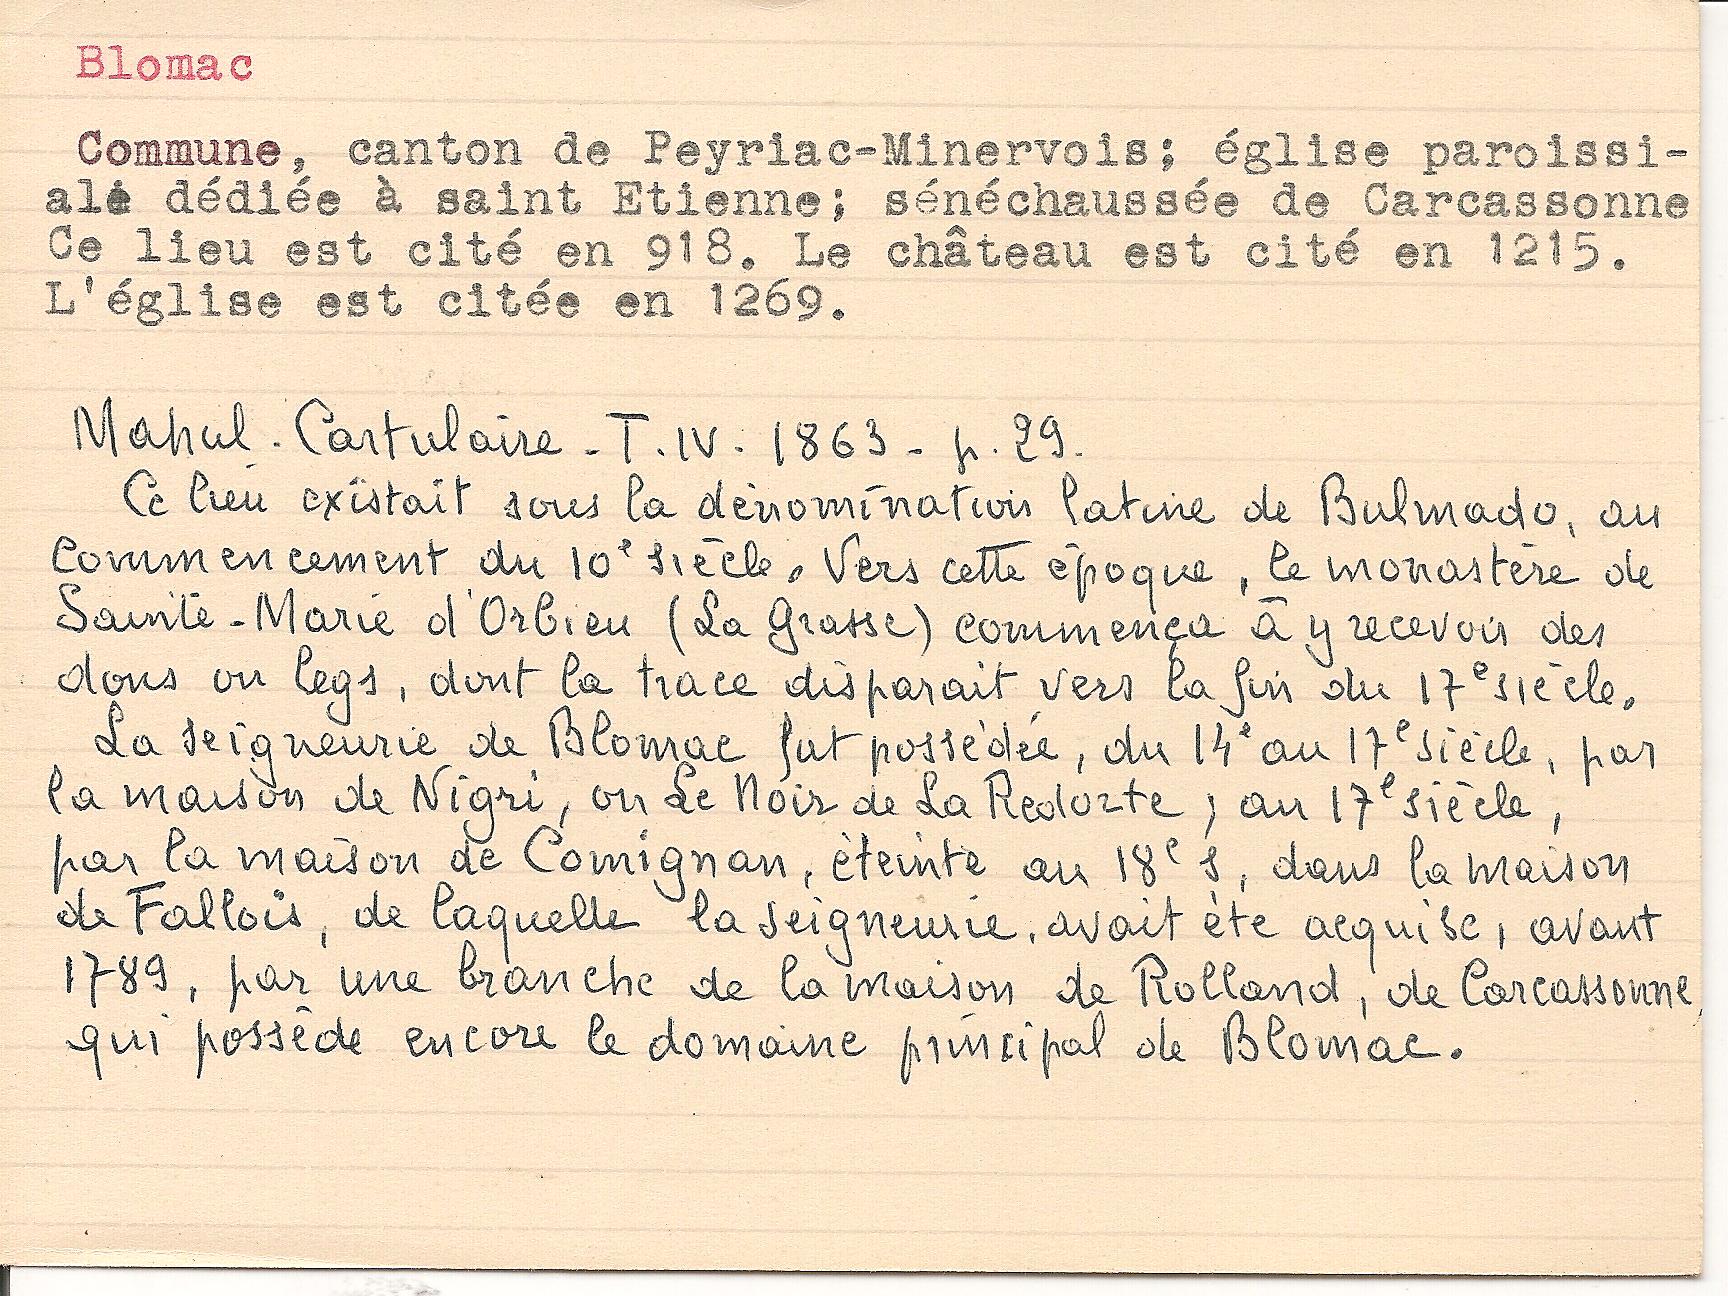 Blomac
Commune, canton de Peyriac-Minervois; église paroissi-
ale dédiée à saint Etienne; sénéchaussée de Carcassonne
Ce lieu est cité en 918. Le château est cité en 1215.
L'église est citée en 1269.
Mahul. Cartulaire - T. IV. 1863 - p. 29.
Ce lieu existait sous la dénomination latine de Bulmado, au
commencement du 10e siècle. Vers cette époque, le monastère de
Sainte-Marie d'Orbieu (La Grasse) commença à y recevoir des
dons ou legs, dont la trace disparait vers la fin du 17e siècle.
La seigneurie de Blomac fut possédée, du 14e au 17e siècle, par
la maison de Nigri, ou Le Noir de La Redorte; au 17e siècle,
par la maison de Comignan, éteinte au 18e s, dans la maison
de Fallois, de laquelle la seigneurie, avait été acquise, avant
1789, par une branche de la maison de Rolland, de Carcassonne,
qui possède encore le domaine principal de Blomac.